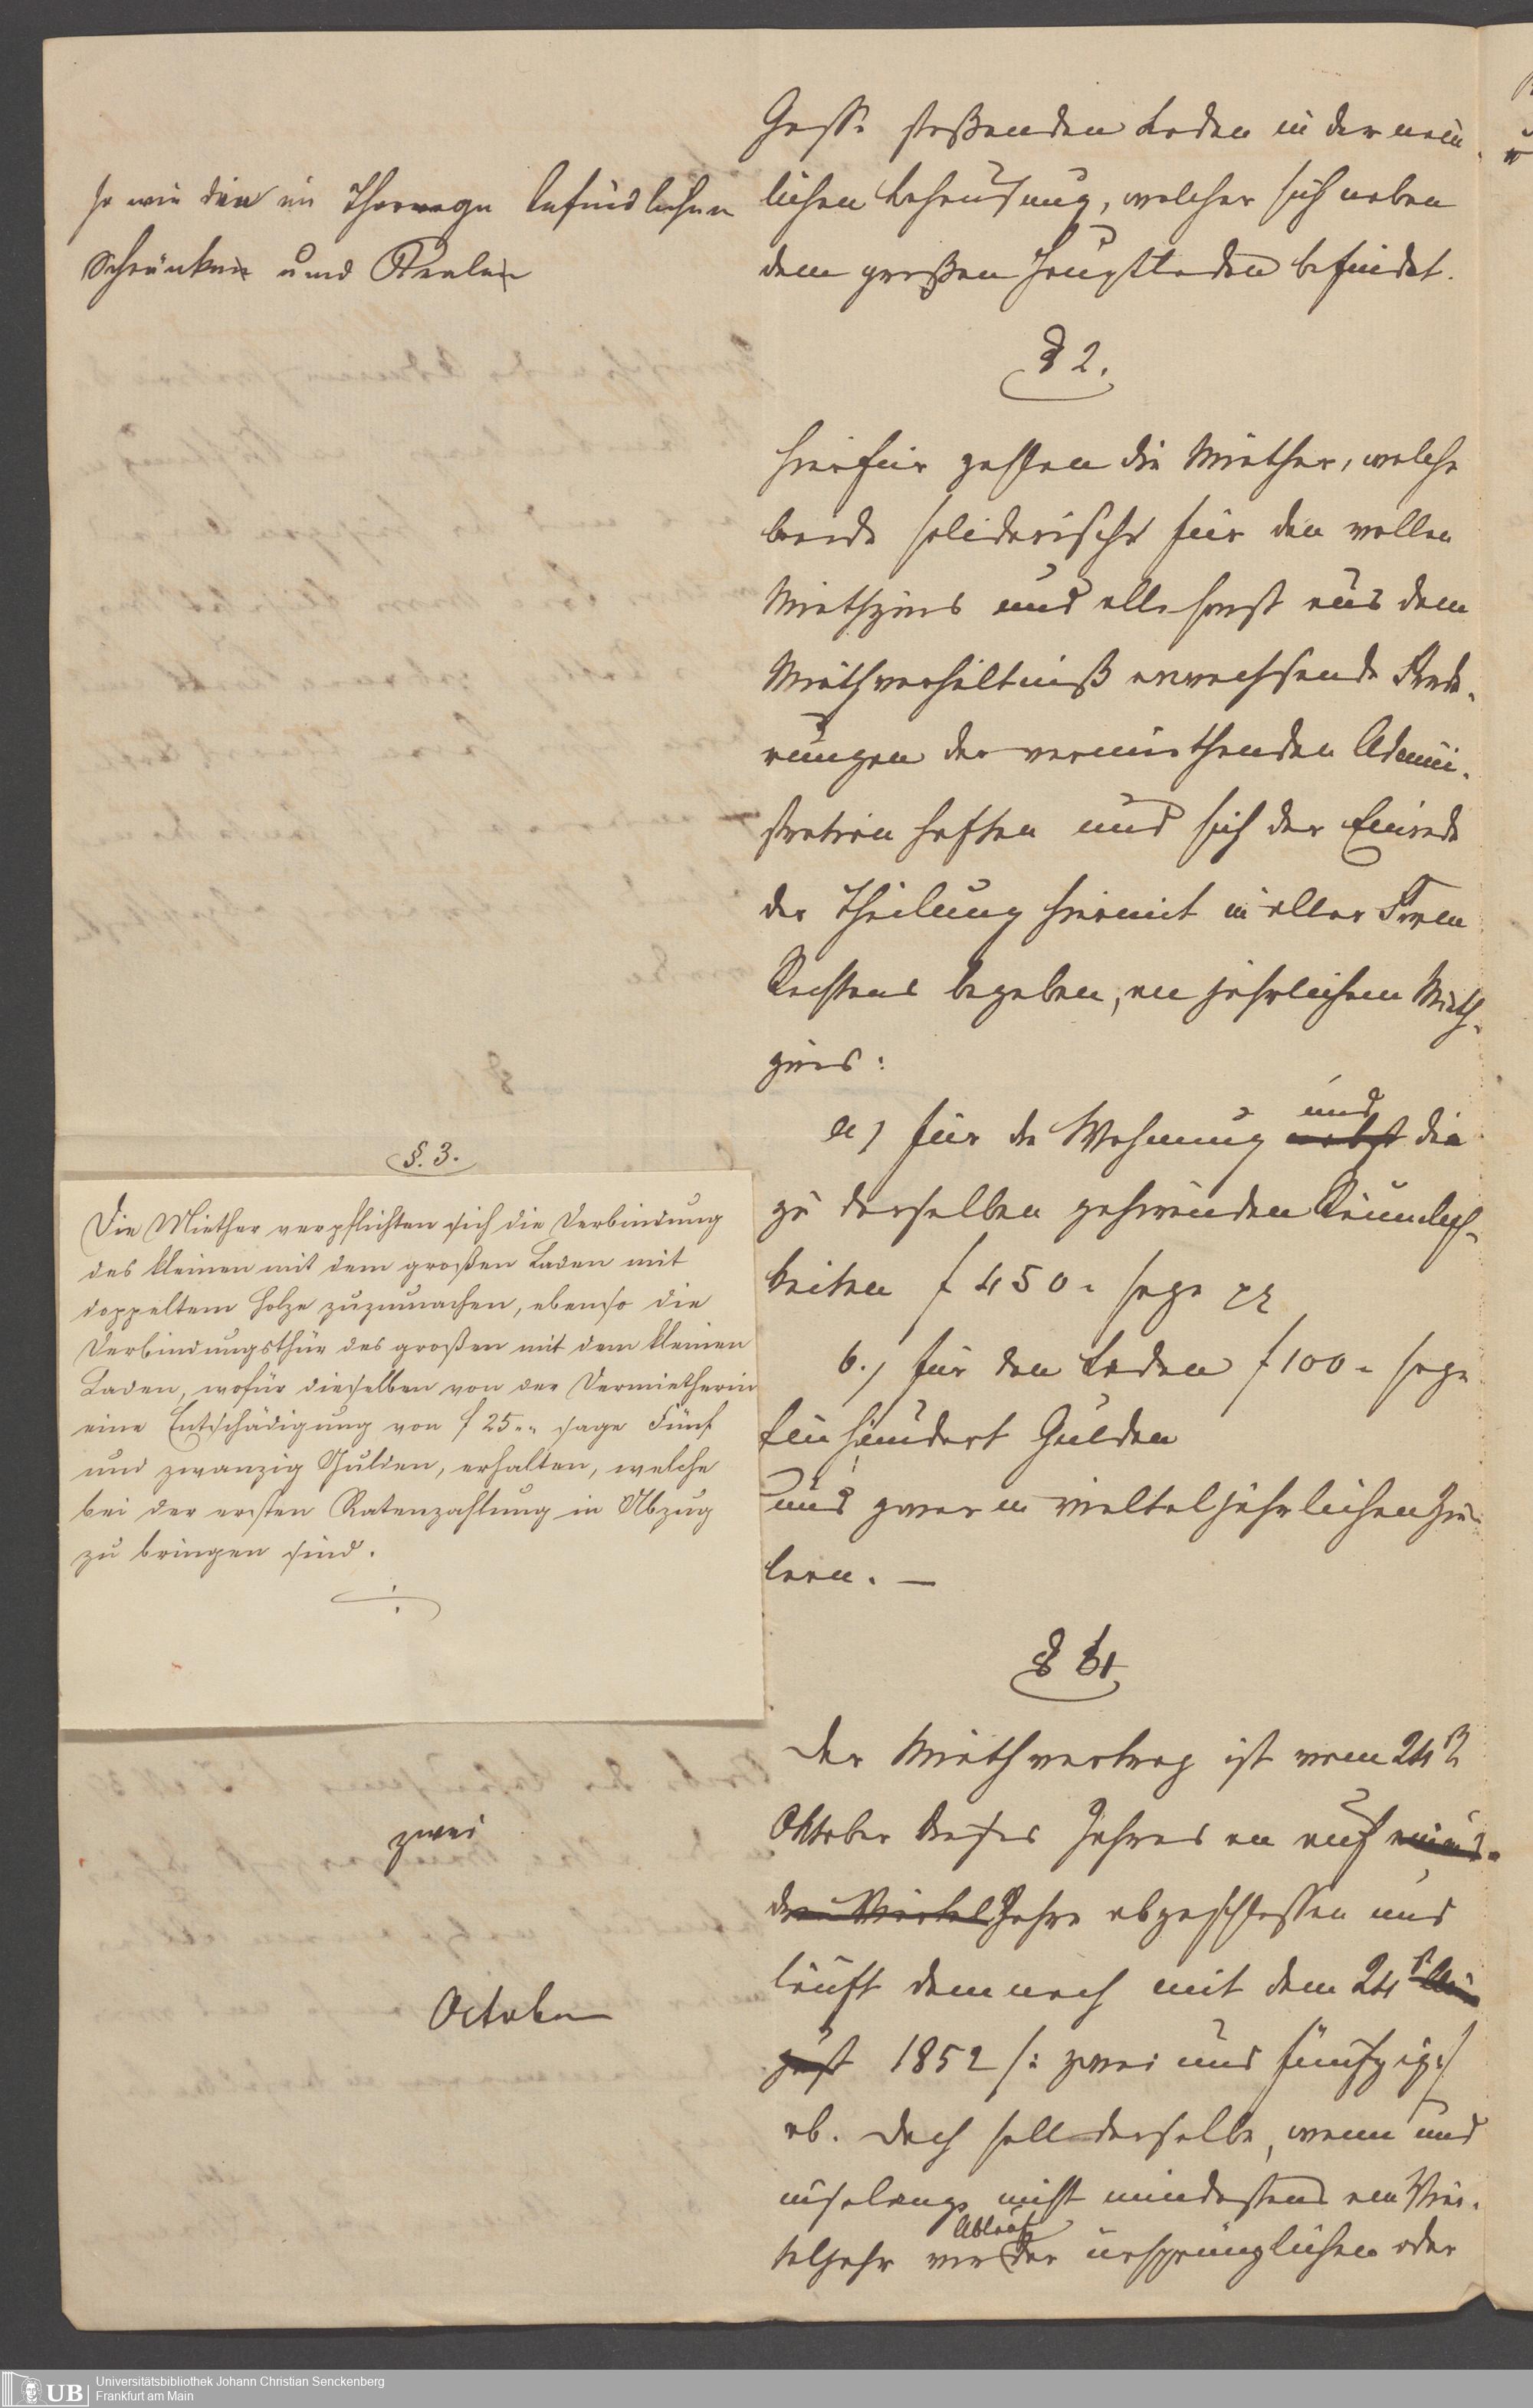 Gasse stoßenden Laden in der nem¬
lichen Behausung, welcher sich neben
dem großen Hauptladen befindet.
so wie den im Thorwege befindlichen
Schränken und Realen
§ 2.
Hierfür zahlen die Miether, welche
beede solidarisch für den vollen
Miethzins und alle sonst aus dem
Miethverhältniß erwachsende Forde¬
rungen der vermiethenden Admini¬
stration haften und sich der Einrede
der Theilung hiermit in aller Form
Rechtens begeben, an jährlichem Mieth¬
zins:
a) für die Wohnung und die
zu derselben gehörenden Räumlich¬
keiten f 450 " sage
b.) für den Laden f 100 " sage
Ein hundert Gulden
und zwar in vierteljährlichen Zie
lern. —
§. 3.
Die Miether verpflichten sich die Verbindung
des kleinen mit dem großen Laden mit
doppeltem Holze zuzumachen, ebenso die
Verbindungsthür des großen mit dem kleinen
Laden, wofür dieselben von der Vermietherin
eine Entschädigung von f 25 " " sage Fünf
und zwanzig Gulden, erhalten, welche
bei der ersten Ratenzahlung in Abzug
zu bringen sind.
§ 4
Der Miethvertrag ist vom 24
Oktober dieses Jahres an auf
zwei
drei Viertel Jahre abgeschlossen und
läuft demnach mit dem 24 Au
October
gust 1852 /: zwei und fünfzig :/
ab. Doch soll derselbe, wenn und
insolange nicht mindestens ein Vier¬
teljahr vor Ablauf der ursprünglichen oder